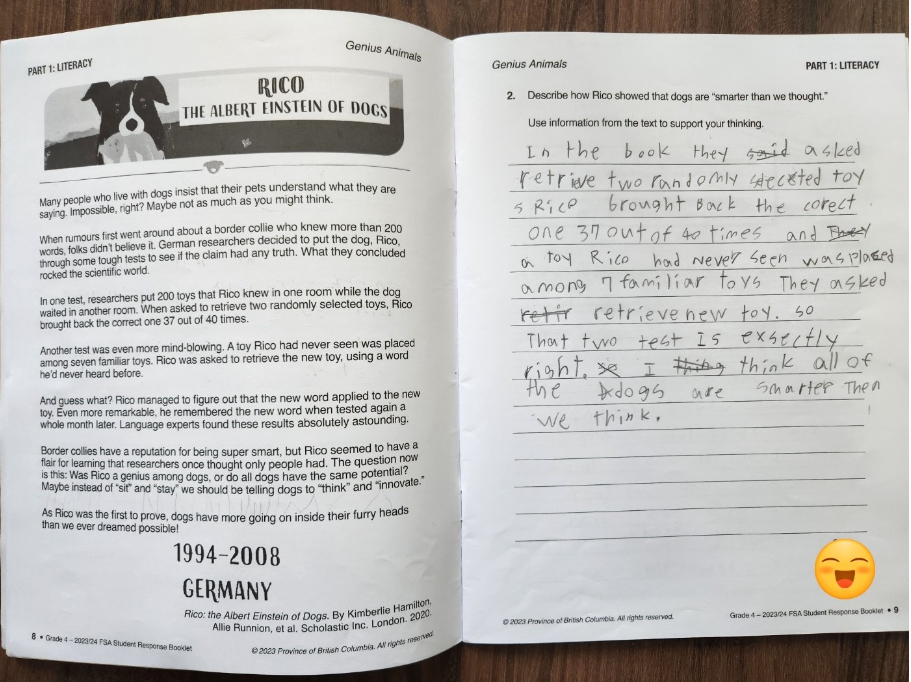 PART 1: LITERACY
Genius Animals
RICO
THE ALBERT EINSTEIN OF DOGS
Many people who live with dogs insist that their pets understand what they are
saying. Impossible, right? Maybe not as much as you might think.
When rumours first went around about a border collie who knew more than 200
words, folks didn't believe it. German researchers decided to put the dog, Rico,
through some tough tests to see if the claim had any truth. What they concluded
rocked the scientific world.
In one test, researchers put 200 toys that Rico knew in one room while the dog
waited in another room. When asked to retrieve two randomly selected toys, Rico
brought back the correct one 37 out of 40 times.
Another test was even more mind-blowing. A toy Rico had never seen was placed
among seven familiar toys. Rico was asked to retrieve the new toy, using a word
he'd never heard before.
And guess what? Rico managed to figure out that the new word applied to the new
toy. Even more remarkable, he remembered the new word when tested again a
whole month later. Language experts found these results absolutely astounding.
Border collies have a reputation for being super smart, but Rico seemed to have a
flair for learning that researchers once thought only people had. The question now
is this: Was Rico a genius among dogs, or do all dogs have the same potential?
Maybe instead of "sit" and "stay" we should be telling dogs to "think" and "innovate."
As Rico was the first to prove, dogs have more going on inside their furry heads
than we ever dreamed possible!
1994–2008
GERMANY
Rico: the Albert Einstein of Dogs. By Kimberlie Hamilton,
Allie Runnion, et al. Scholastic Inc. London. 2020.
8 • Grade 4 – 2023/24 FSA Student Response Booklet
© 2023 Province of British Columbia. All rights reserved.
Genius Animals
PART 1: LITERACY
2. Describe how Rico showed that dogs are "smarter than we thought."
Use information from the text to support your thinking.
In the book they said asked
retrieve two randomly selected toy
s Rico brought Back the corect
one 37 out of 40 times and They
a toy Rico had never seen was placed
among 7 familiar toys They asked
retrieve new toy. so
That two test Is exsectly
right. so I thing think all of
the dogs are smarter Then
we think.
© 2023 Province of British Columbia. All rights reserved.
Grade 4 – 2023/24 FSA Student Response Booklet • 9